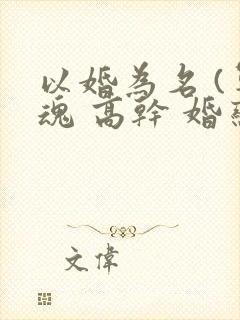 以婚為名(
魂 高幹 婚
文偉